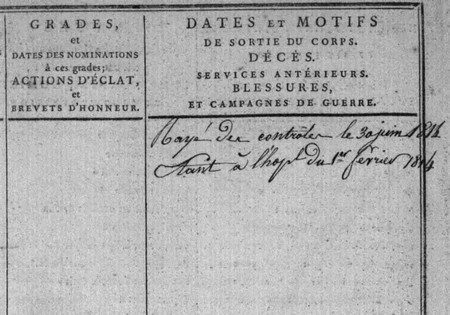 GRADES,
et
DATES DES NOMINATIONS
à ces grades;
ACTIONS D'ÉCLAT,
et
BREVETS D'HONNEUR.
DATES et MOTIFS
DE SORTIE DU CORPS.
DÉCÈS.
SERVICES ANTÉRIEURS.
BLESSURES,
ET CAMPAGNES DE GUERRE.
Rayé des contrôles le 30 juin 1814
étant à l'hopl du 1er février 1814